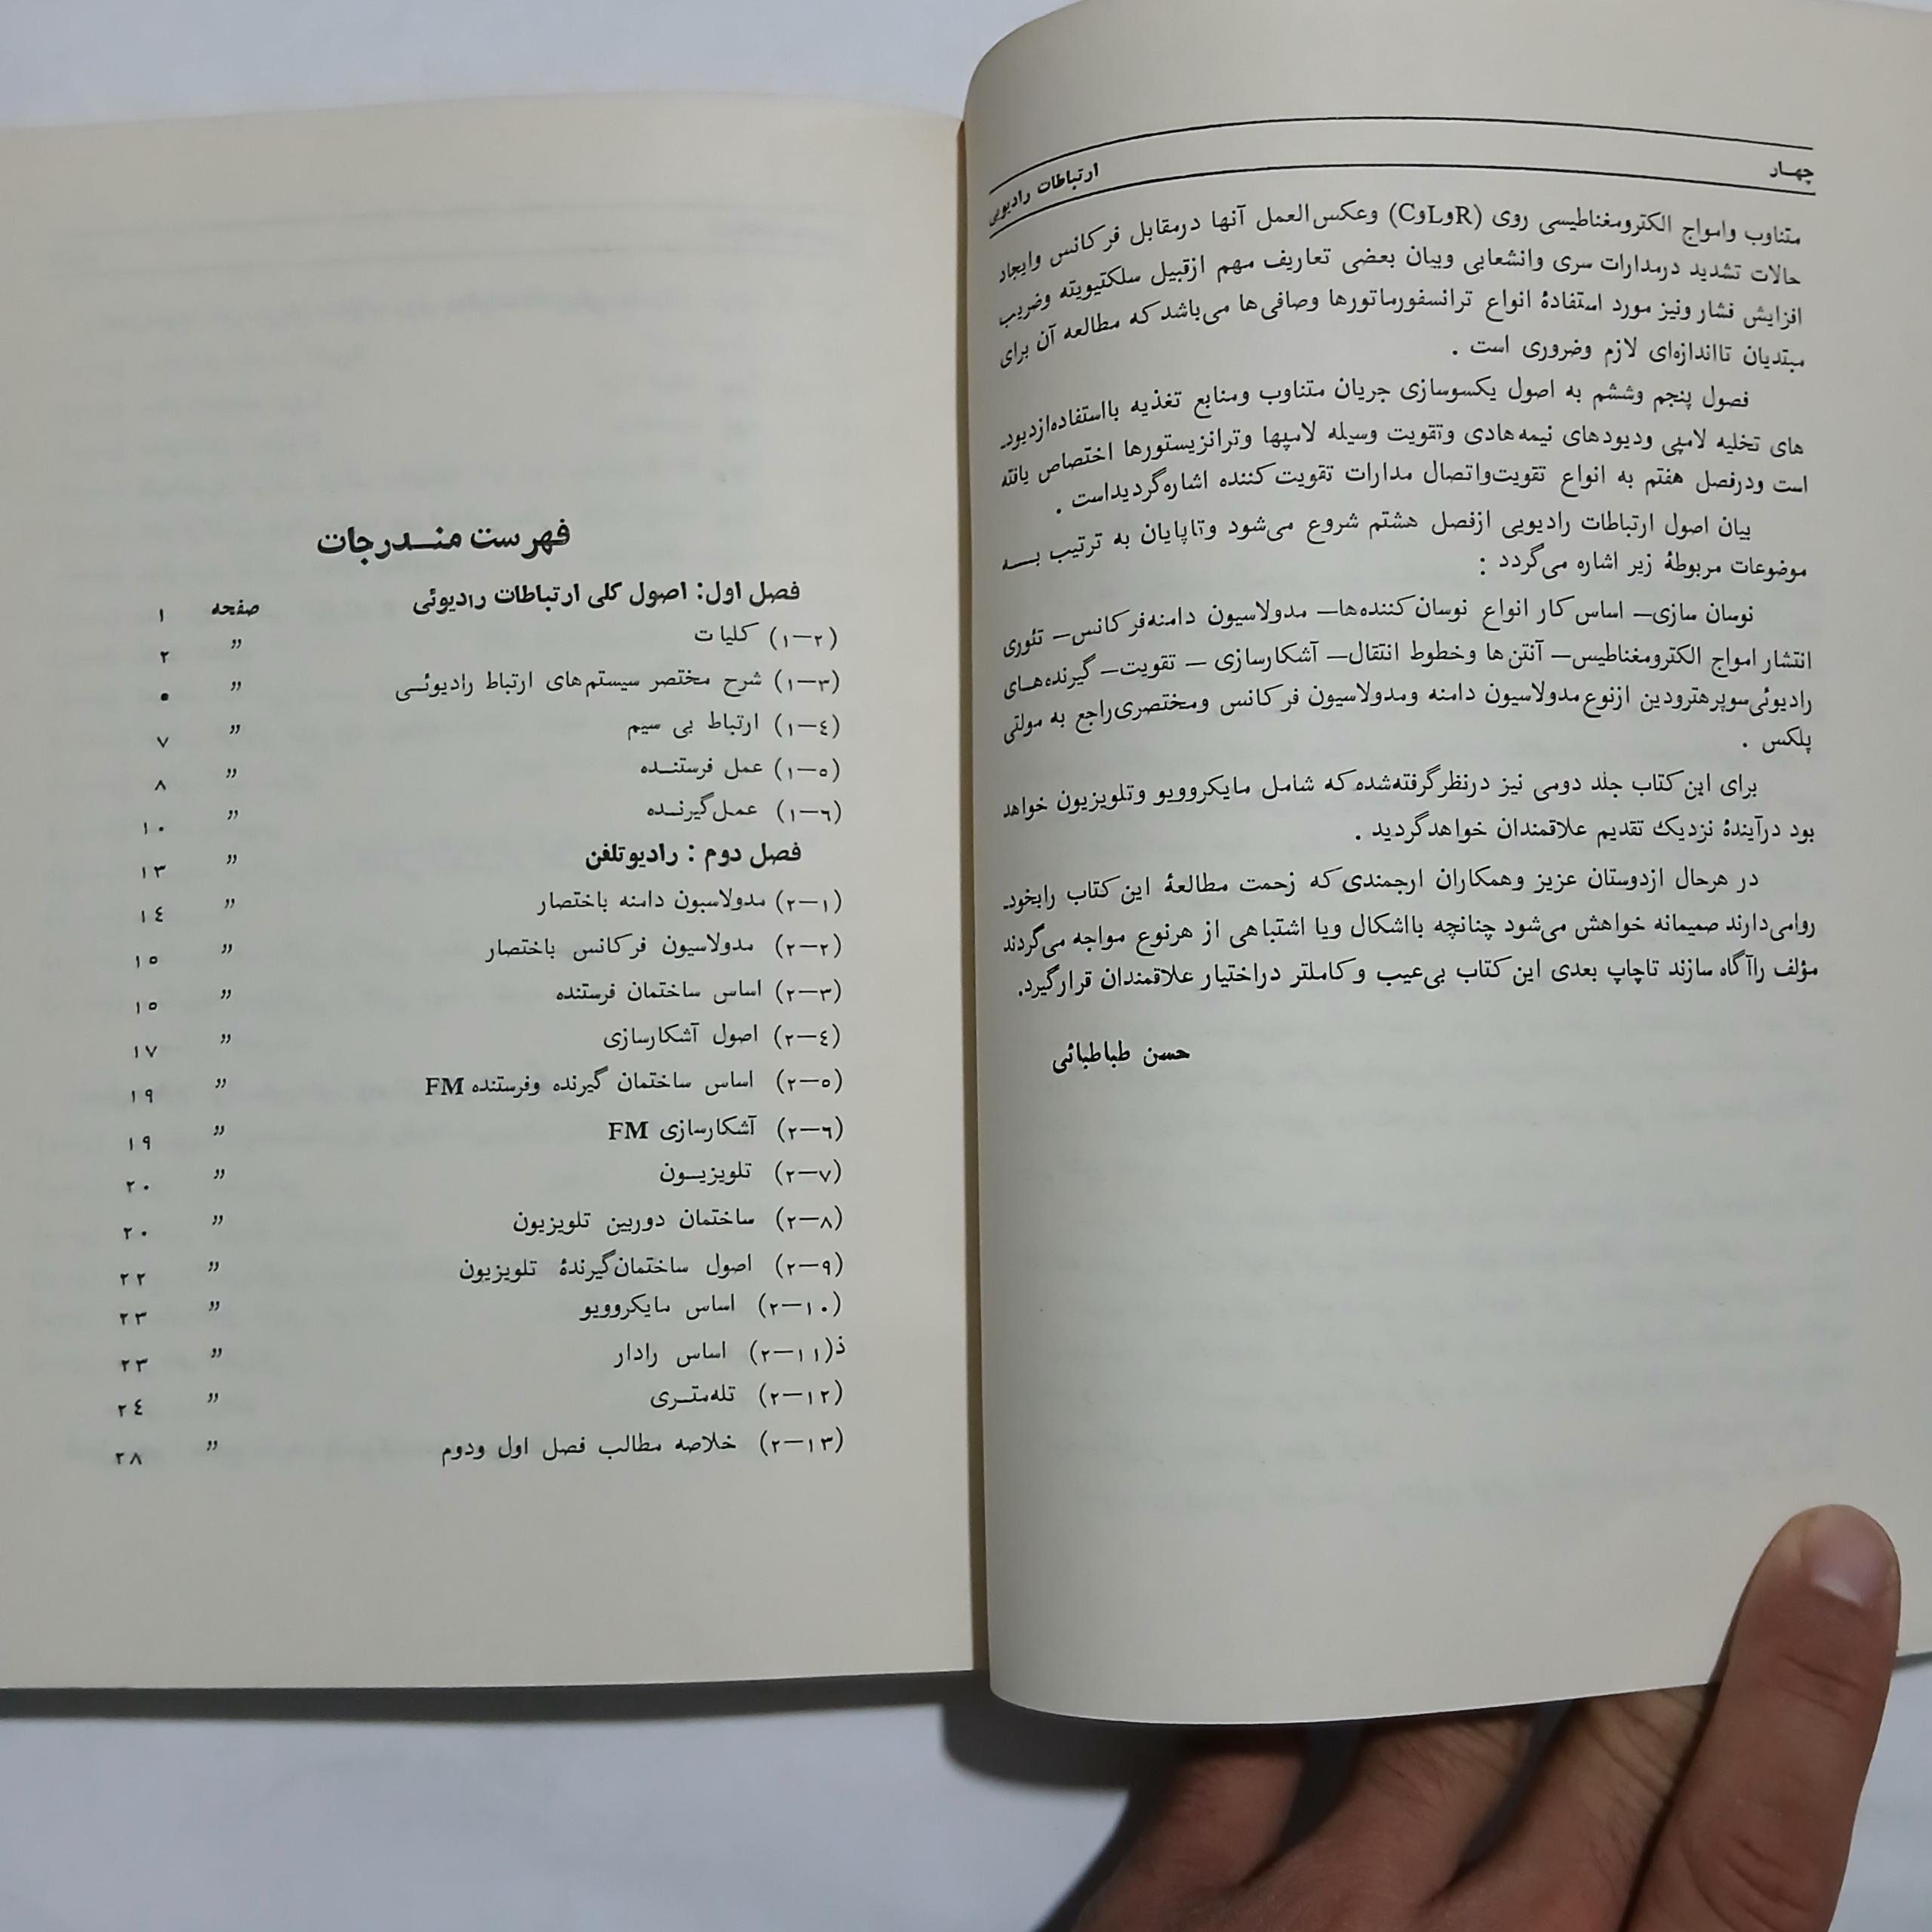 چهار
ارتباطات رادیویی
متناوب وامواج الکترومغناطیسی روی (RوLوC) وعکس‌العمل آنها درمقابل فرکانس وایجاد
حالات تشدید درمدارات سری وانشعابی وبیان بعضی تعاریف مهم ازقبیل سلکتیویته وضریب
افزایش فشار ونیز مورد استفادهٔ انواع ترانسفورماتورها وصافی‌ها می‌باشد که مطالعه آن برای
مبتدیان تااندازه‌ای لازم وضروری است .
فصول پنجم وششم به اصول یکسوسازی جریان متناوب ومنابع تغذیه بااستفاده‌ازدیود-
های تخلیه لامپی ودیودهای نیمه‌هادی وتقویت وسیله لامپها وترانزیستورها اختصاص یافته
است ودرفصل هفتم به انواع تقویت‌واتصال مدارات تقویت‌کننده اشاره‌گردیداست .
بیان اصول ارتباطات رادیویی ازفصل هشتم شروع می‌شود وتاپایان به ترتیب بـــه
موضوعات مربوطهٔ زیر اشاره می‌گردد :
نوسان سازی— اساس کار انواع نوسان‌کننده‌ها— مدولاسیون دامنه‌فرکانس— تئوری
انتشار امواج الکترومغناطیس— آنتن‌ها وخطوط انتقال— آشکارسازی — تقویت— گیرنده‌هـای
رادیوئی‌سوپرهترودین ازنوع‌مدولاسیون دامنه ومدولاسیون فرکانس ومختصری‌راجع به مولتی
پلکس .
برای این‌کتاب جلد دومی نیز درنظرگرفته‌شده‌که شامل مایکروویو وتلویزیون خواهد
بود درآیندهٔ نزدیک تقدیم علاقمندان خواهدگردید .
در هرحال ازدوستان عزیز وهمکاران ارجمندی‌که زحمت مطالعهٔ این‌کتاب رابخود-
روامی‌دارند صمیمانه خواهش می‌شود چنانچه بااشکال ویا اشتباهی از هرنوع مواجه می‌گردند
مؤلف راآگاه سازند تاچاپ بعدی این‌کتاب بی‌عیب وکاملتر دراختیار علاقمندان قرارگیرد.
حسن طباطبائی
فهرست منـــدرجات
فصل اول: اصول کلی ارتباطات رادیوئی صفحه ۱
(۱—۲) کلیات » ۲
(۱—۳) شرح مختصر سیستم‌های ارتباط رادیوئـی » ۰
(۱—٤) ارتباط بی سیم » ۷
(۱—۵) عمل فرستنـده » ۸
(۱—٦) عمل‌گیرنـده » ۱۰
فصل دوم : رادیوتلفن » ۱۳
(۲—۱) مدولاسیون دامنه باختصار » ۱٤
(۲—۲) مدولاسیون فرکانس باختصار » ۱۵
(۲—۳) اساس ساختمان فرستنده » ۱۵
(۲—٤) اصول آشکارسازی » ۱۷
(۲—۵) اساس ساختمان گیرنده وفرستنده FM » ۱۹
(۲—٦) آشکارسازی FM » ۱۹
(۲—۷) تلویزیـون » ۲۰
(۲—۸) ساختمان دوربین تلویزیون » ۲۰
(۲—۹) اصول ساختمان‌گیرندهٔ تلویزیون » ۲۲
(۲—۱۰) اساس مایکروویو » ۲۳
ذ(۲—۱۱) اساس رادار » ۲۳
(۲—۱۲) تله‌متـری » ۲٤
(۲—۱۳) خلاصه مطالب فصل اول ودوم » ۲۸